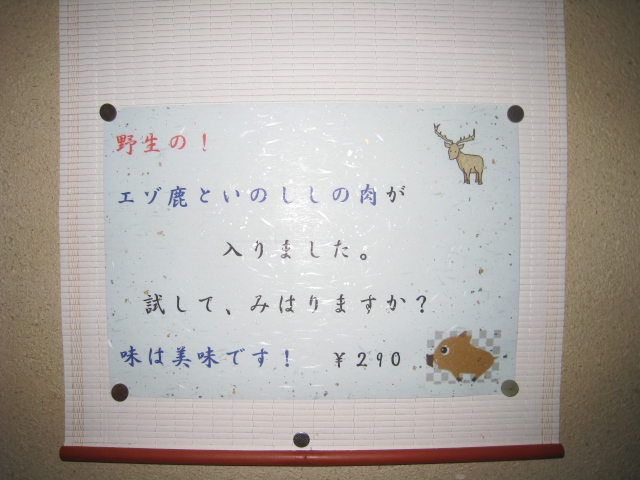 野生の！
エゾ鹿といのししの肉が
入りました。
試して、みはりますか？
味は美味です！ ￥２９０